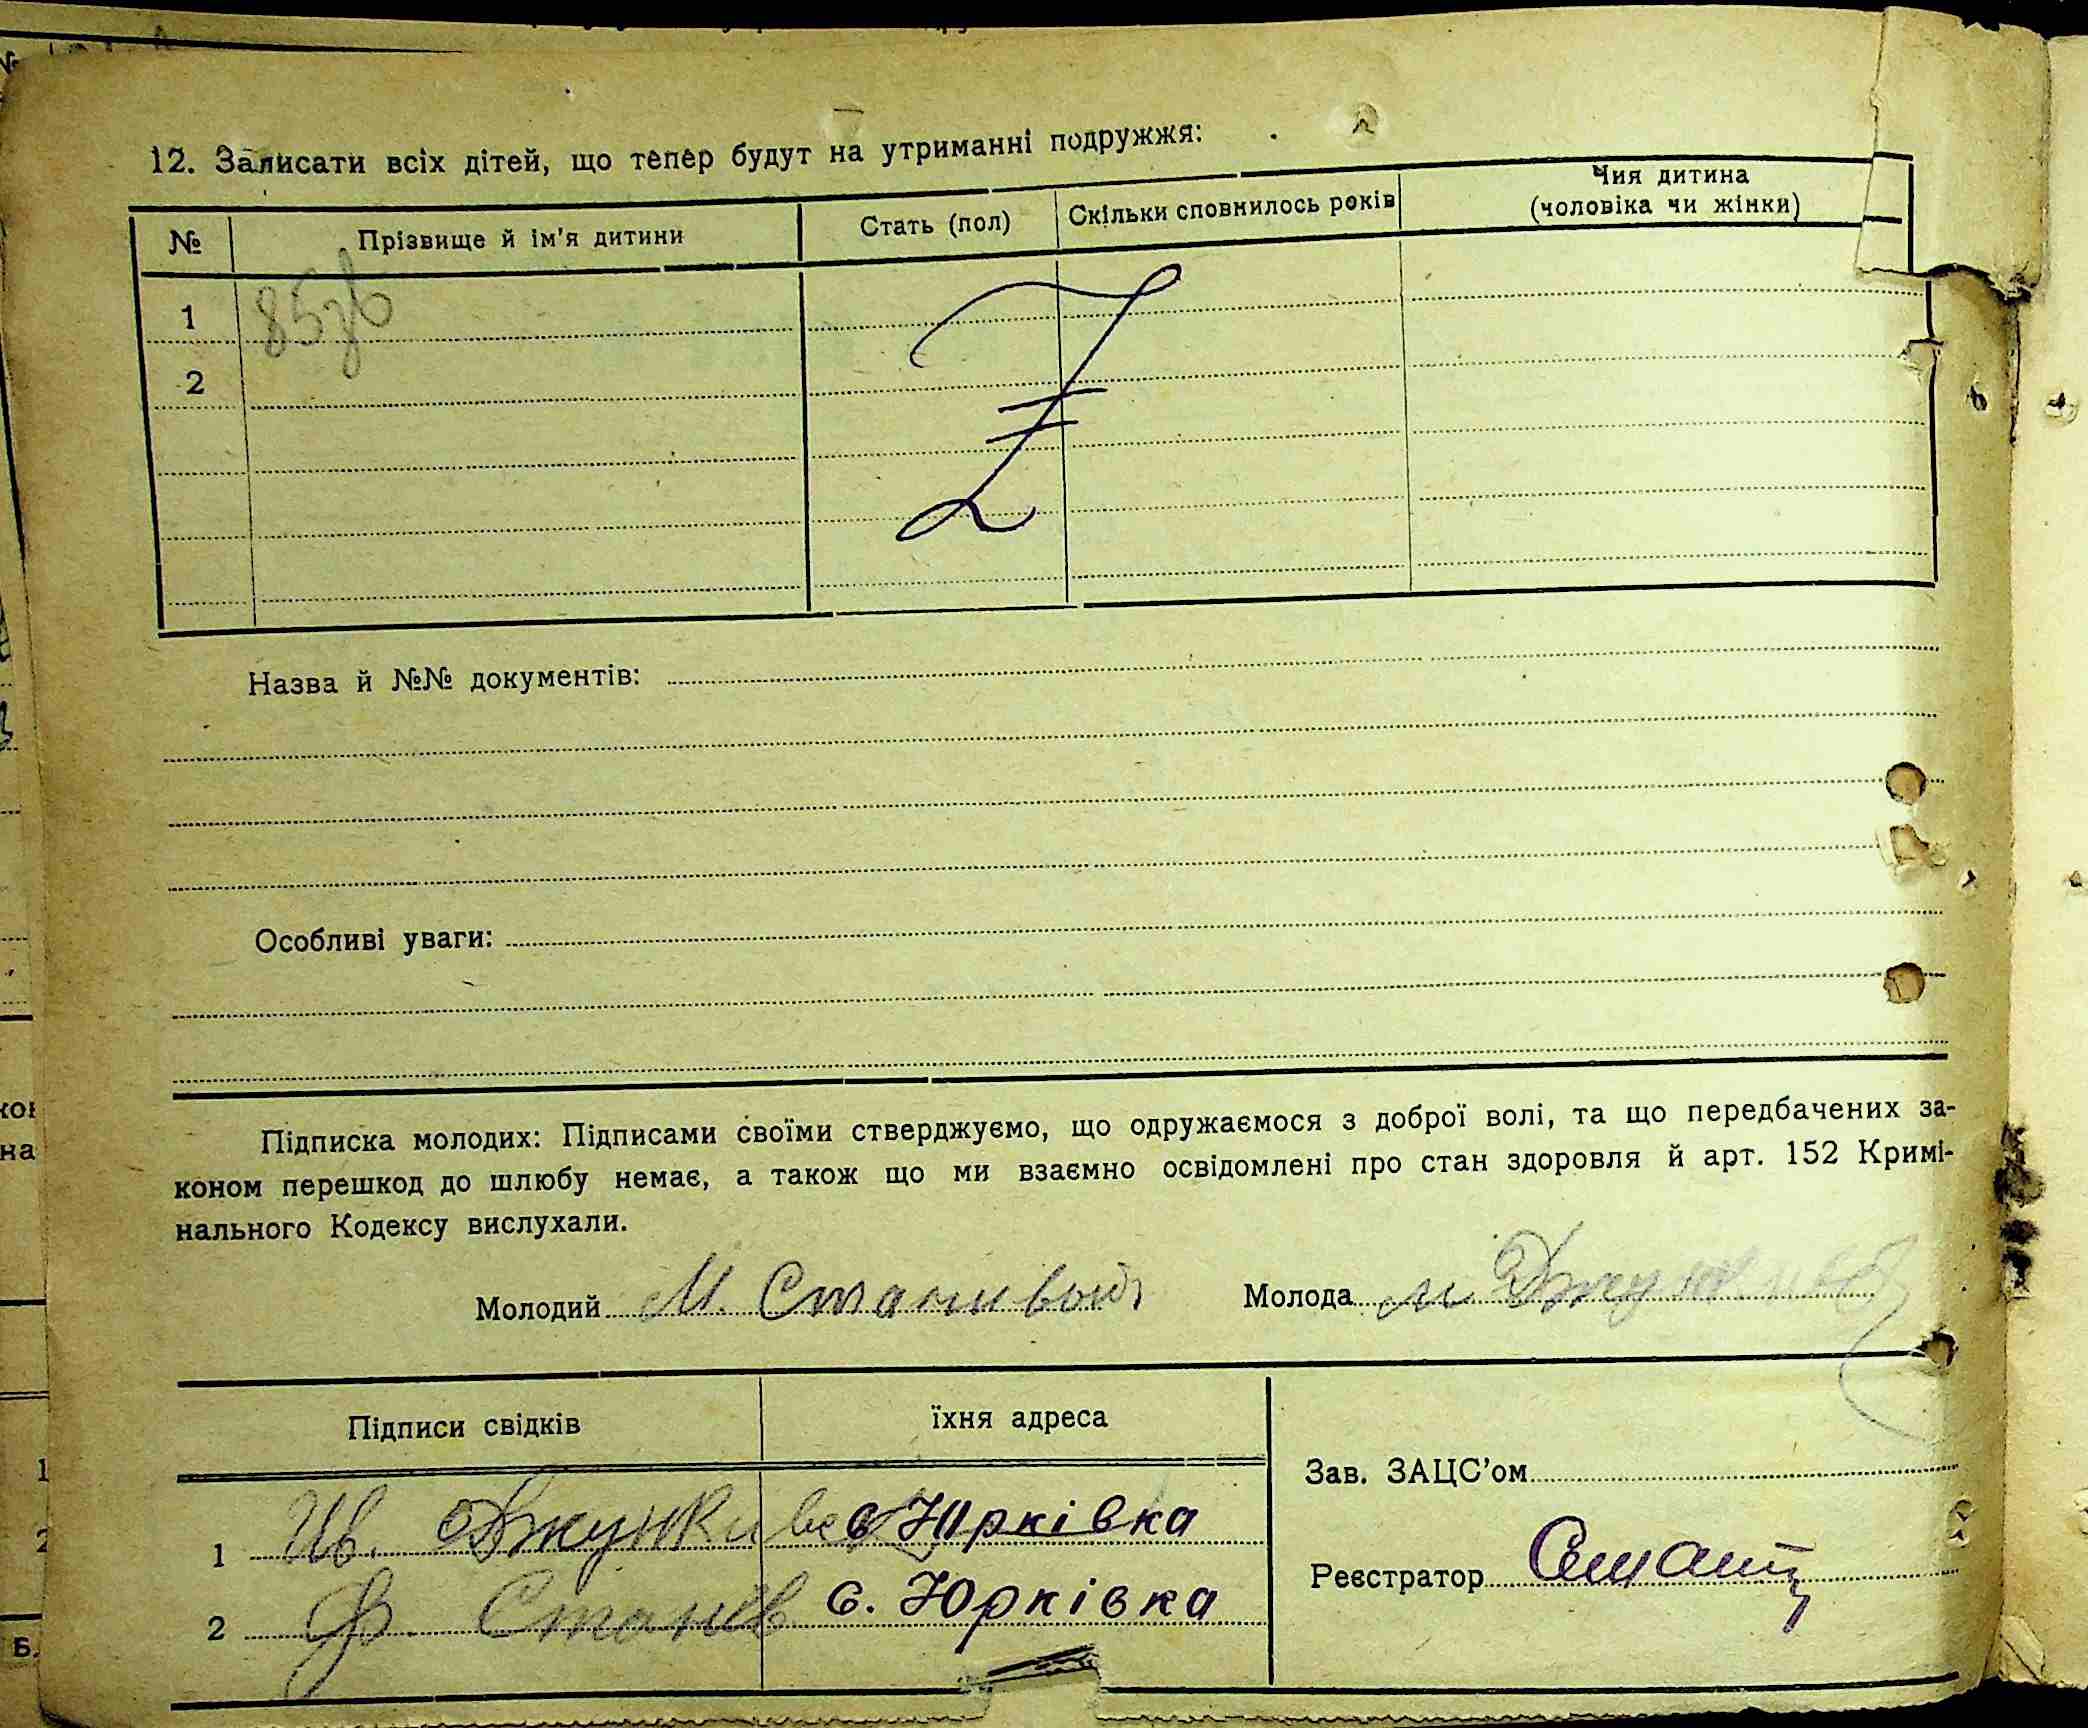 12. Записати всіх дітей, що тепер будут на утриманні подружжя:
№ Прізвище й ім'я дитини Стать (пол) Скільки сповнилось років Чия дитина
(чоловіка чи жінки)
1 85зв
2
Назва й №№ документів:
Особливі уваги:
Підписка молодих: Підписами своїми стверджуємо, що одружаємося з доброї волі, та що передбачених за-
коном перешкод до шлюбу немає, а також що ми взаємно освідомлені про стан здоровля й арт. 152 Кримі-
нального Кодексу вислухали.
Молодий М. Молода М
Підписи свідків їхня адреса
Зав. ЗАЦС'ом
1 Ив. с Юрківка
Реєстратор
2 Ф. с. Юрківка